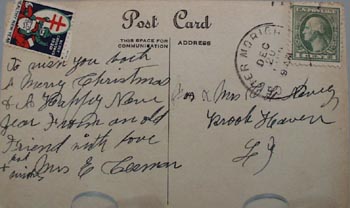 Post Card
THIS SPACE FOR
COMMUNICATION
ADDRESS
DEC
To wish you both
A Merry Christmas
& A Happy New
year from an old
Friend with love
& best
wishes
Mrs E
Mr & Mrs
Brook Haven
L I